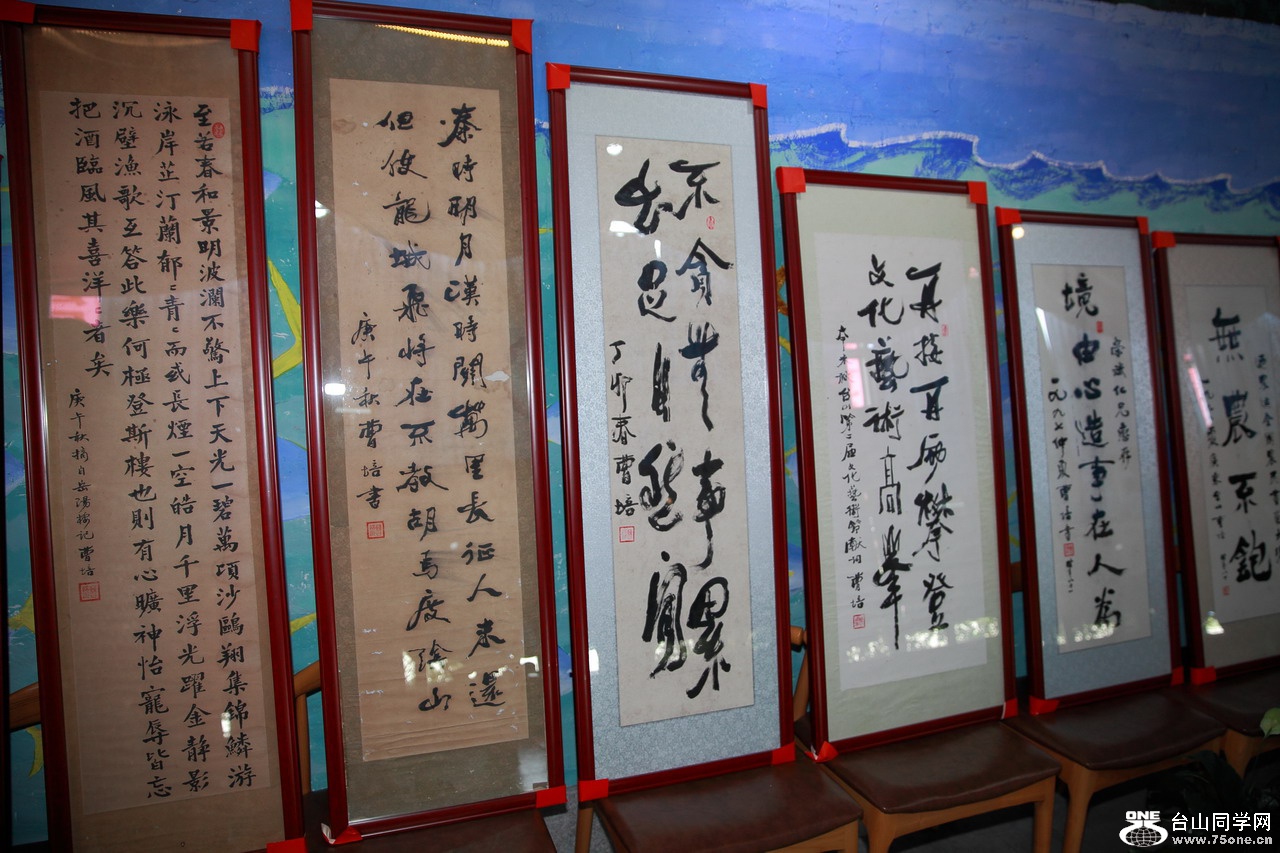 至若春和景明波瀾不驚上下天光一碧萬頃沙鷗翔集錦鱗游
泳岸芷汀蘭郁〻青〻而或長煙一空皓月千里浮光躍金靜影
沉璧漁歌互答此樂何極登斯樓也則有心曠神怡寵辱皆忘
把酒臨風其喜洋〻者矣
庚午秋摘自岳陽樓記 曹培
秦時明月漢時關萬里長征人未還
但使龍城飛將在不教胡馬度陰山
庚午秋 曹培書
不貪 事累
知足自
丁卯春 曹培
再接再厲攀登
文化藝術高峰
台山第二届文化藝術節獻詞 曹培
惠存
境由心造事在人為
一九九七仲夏 曹培書
無農不飽
ONE
台山同学网
www.75one.cn